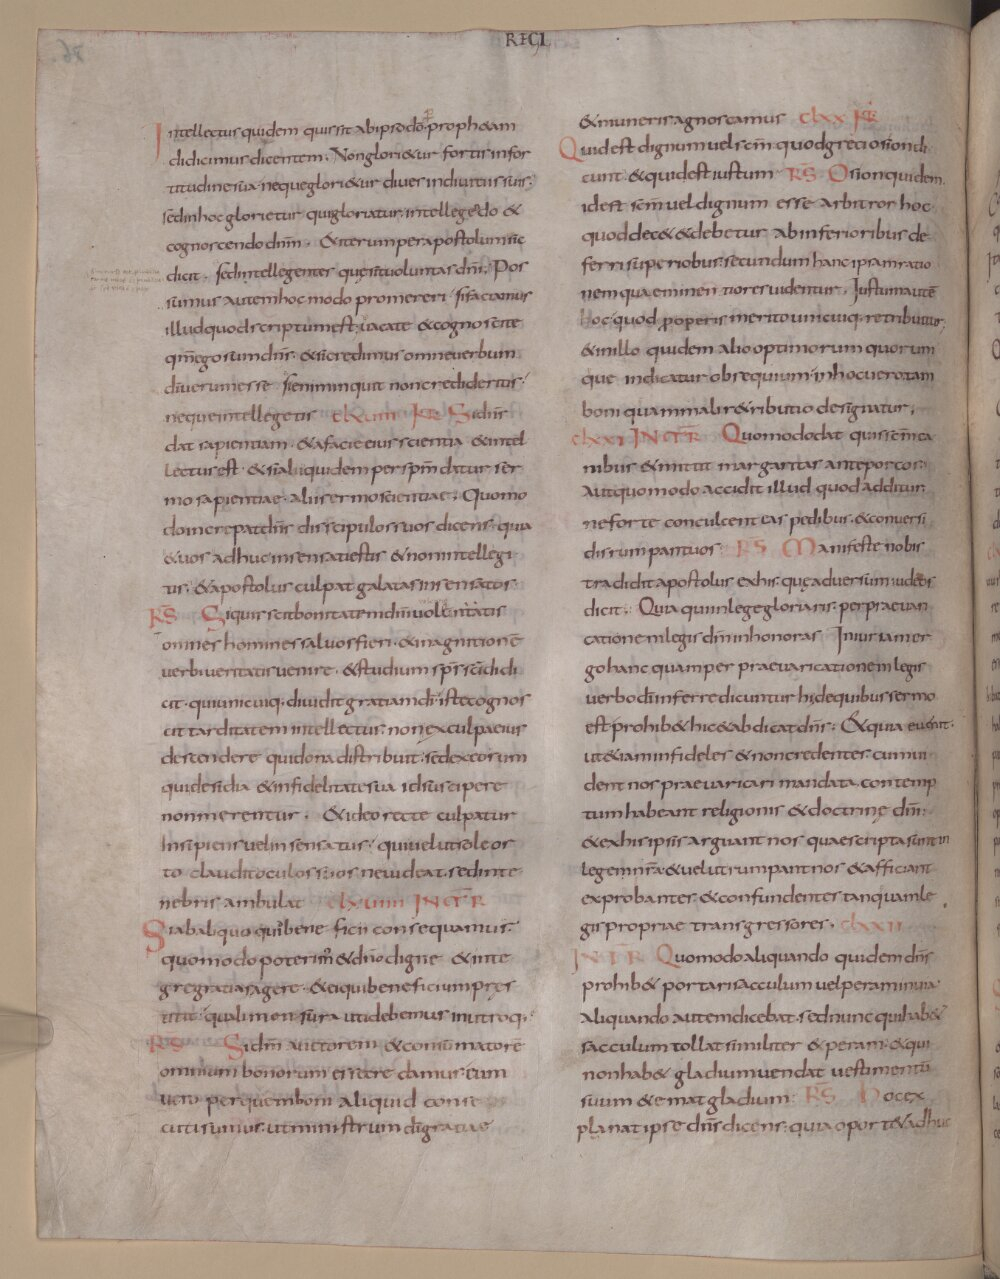 REGL
Intellectus quidem quis sit ab ipso do prophetam
didicimus dicentem. Non glorietur fortis in for
titudine sua neque glorietur dives in divitiis suis.
sed in hoc glorietur qui gloriatur. intellegendo &
cognoscendo dnm. & iterum per apostolum sic
dicit. sed intellegentes quę sit voluntas dni. Pos
sumus autem hoc modo promereri si faciamus
illud quod scriptum est; vacate & cognoscite
qm ego sum dns. & si credimus omne verbum
di verum esse. si enim inquit non credideritis.
neque intellegetis clxviii INTR Si dns
dat sapientiam. & a facie eius scientia & intel
lectus est. & si alii quidem per spm datur ser
mo sapientiae. alii sermo scientiae. Quomo
do increpat dns discipulos suos dicens. quia
& vos adhuc insensati estis & non intellegi
tis. & apostolus culpat galatas insensatos.
RS Si quis scit bonitatem di volentis
omnes homines salvos fieri. & in agnitionē
verbi veritatis venire. & studium sps sci didi
cit. qui unicuiq. dividit gratiam di. iste cognos
cit tarditatem intellectus. non ex culpa eius
descendere qui dona distribuit. sed ex eorum
qui desidia & infidelitate sua id suscipere
non merentur. & ideo recte culpatur
Insipiens vel insensatus. qui velut sole or
to claudit oculos suos ne videat. sed in te
nebris ambulat clxviiii INTR
Si ab aliquo quid beneficii consequamur.
quomodo poterim & dno digne & inte
gre gratias agere. & ei qui beneficium pręs
titit. qualimensura uti debemus in utroq.
RS Si dm auctorem & consummatorē
omnium bonorum esse credamus. eum
vero per quem boni aliquid conse
cuti sumus. ut ministrum di gratiae
& muneris agnoscamus clxx INTR
Quid est dignum vel scm. quod greci osion di
cunt & quid est iustum RS Osion quidem.
id est scm vel dignum esse arbitror hoc
quod dec& & debetur ab inferioribus de
ferri superioribus. secundum hanc ipsam ratio
nem qua eminentiores videntur. Iustum autē
hoc quod pro operis merito unicuiq. retribuitur.
& in illo quidem alio optimorum quorum
que indicatur obsequium. in hoc vero tam
boni quam mali retributio designatur.
clxxi INTR Quomodo dat quis scm ca
nibus & mittit margaritas ante porcos.
Aut quomodo accidit illud quod additur
ne forte conculcent eas pedibus. & conversi
disrumpant vos. RS Manifeste nobis
tradidit apostolus ex his. quę adversum iudeos
dicit. Quia qui in lege gloriaris. per praevari
cationem legis dm inhonoras Iniuriam er
go hanc quam per praevaricationem legis
verbo di inferre dicuntur hi de quibus sermo
est prohib& hic & abdicat dns. & quia evenit.
ut & iam infideles & non credentes. cum vi
dent nos praevaricari mandata. contemp
tum habeant religionis & doctrinę dni.
& ex his ipsis arguant nos quae scripta sunt in
lege nra. & velut rumpant nos & afficiant
exprobantes & confundentes tanquam le
gis propriae transgressores. clxxii
INTR Quomodo aliquando quidem dns
prohib& portari sacculum vel peram in via
Aliquando autem dicebat. sed nunc qui hab&
sacculum tollat similiter & peram. & qui
non hab& gladium vendat vestimentū
suum & emat gladium. RS Hoc ex
planat ipse dns dicens. quia oport& adhuc